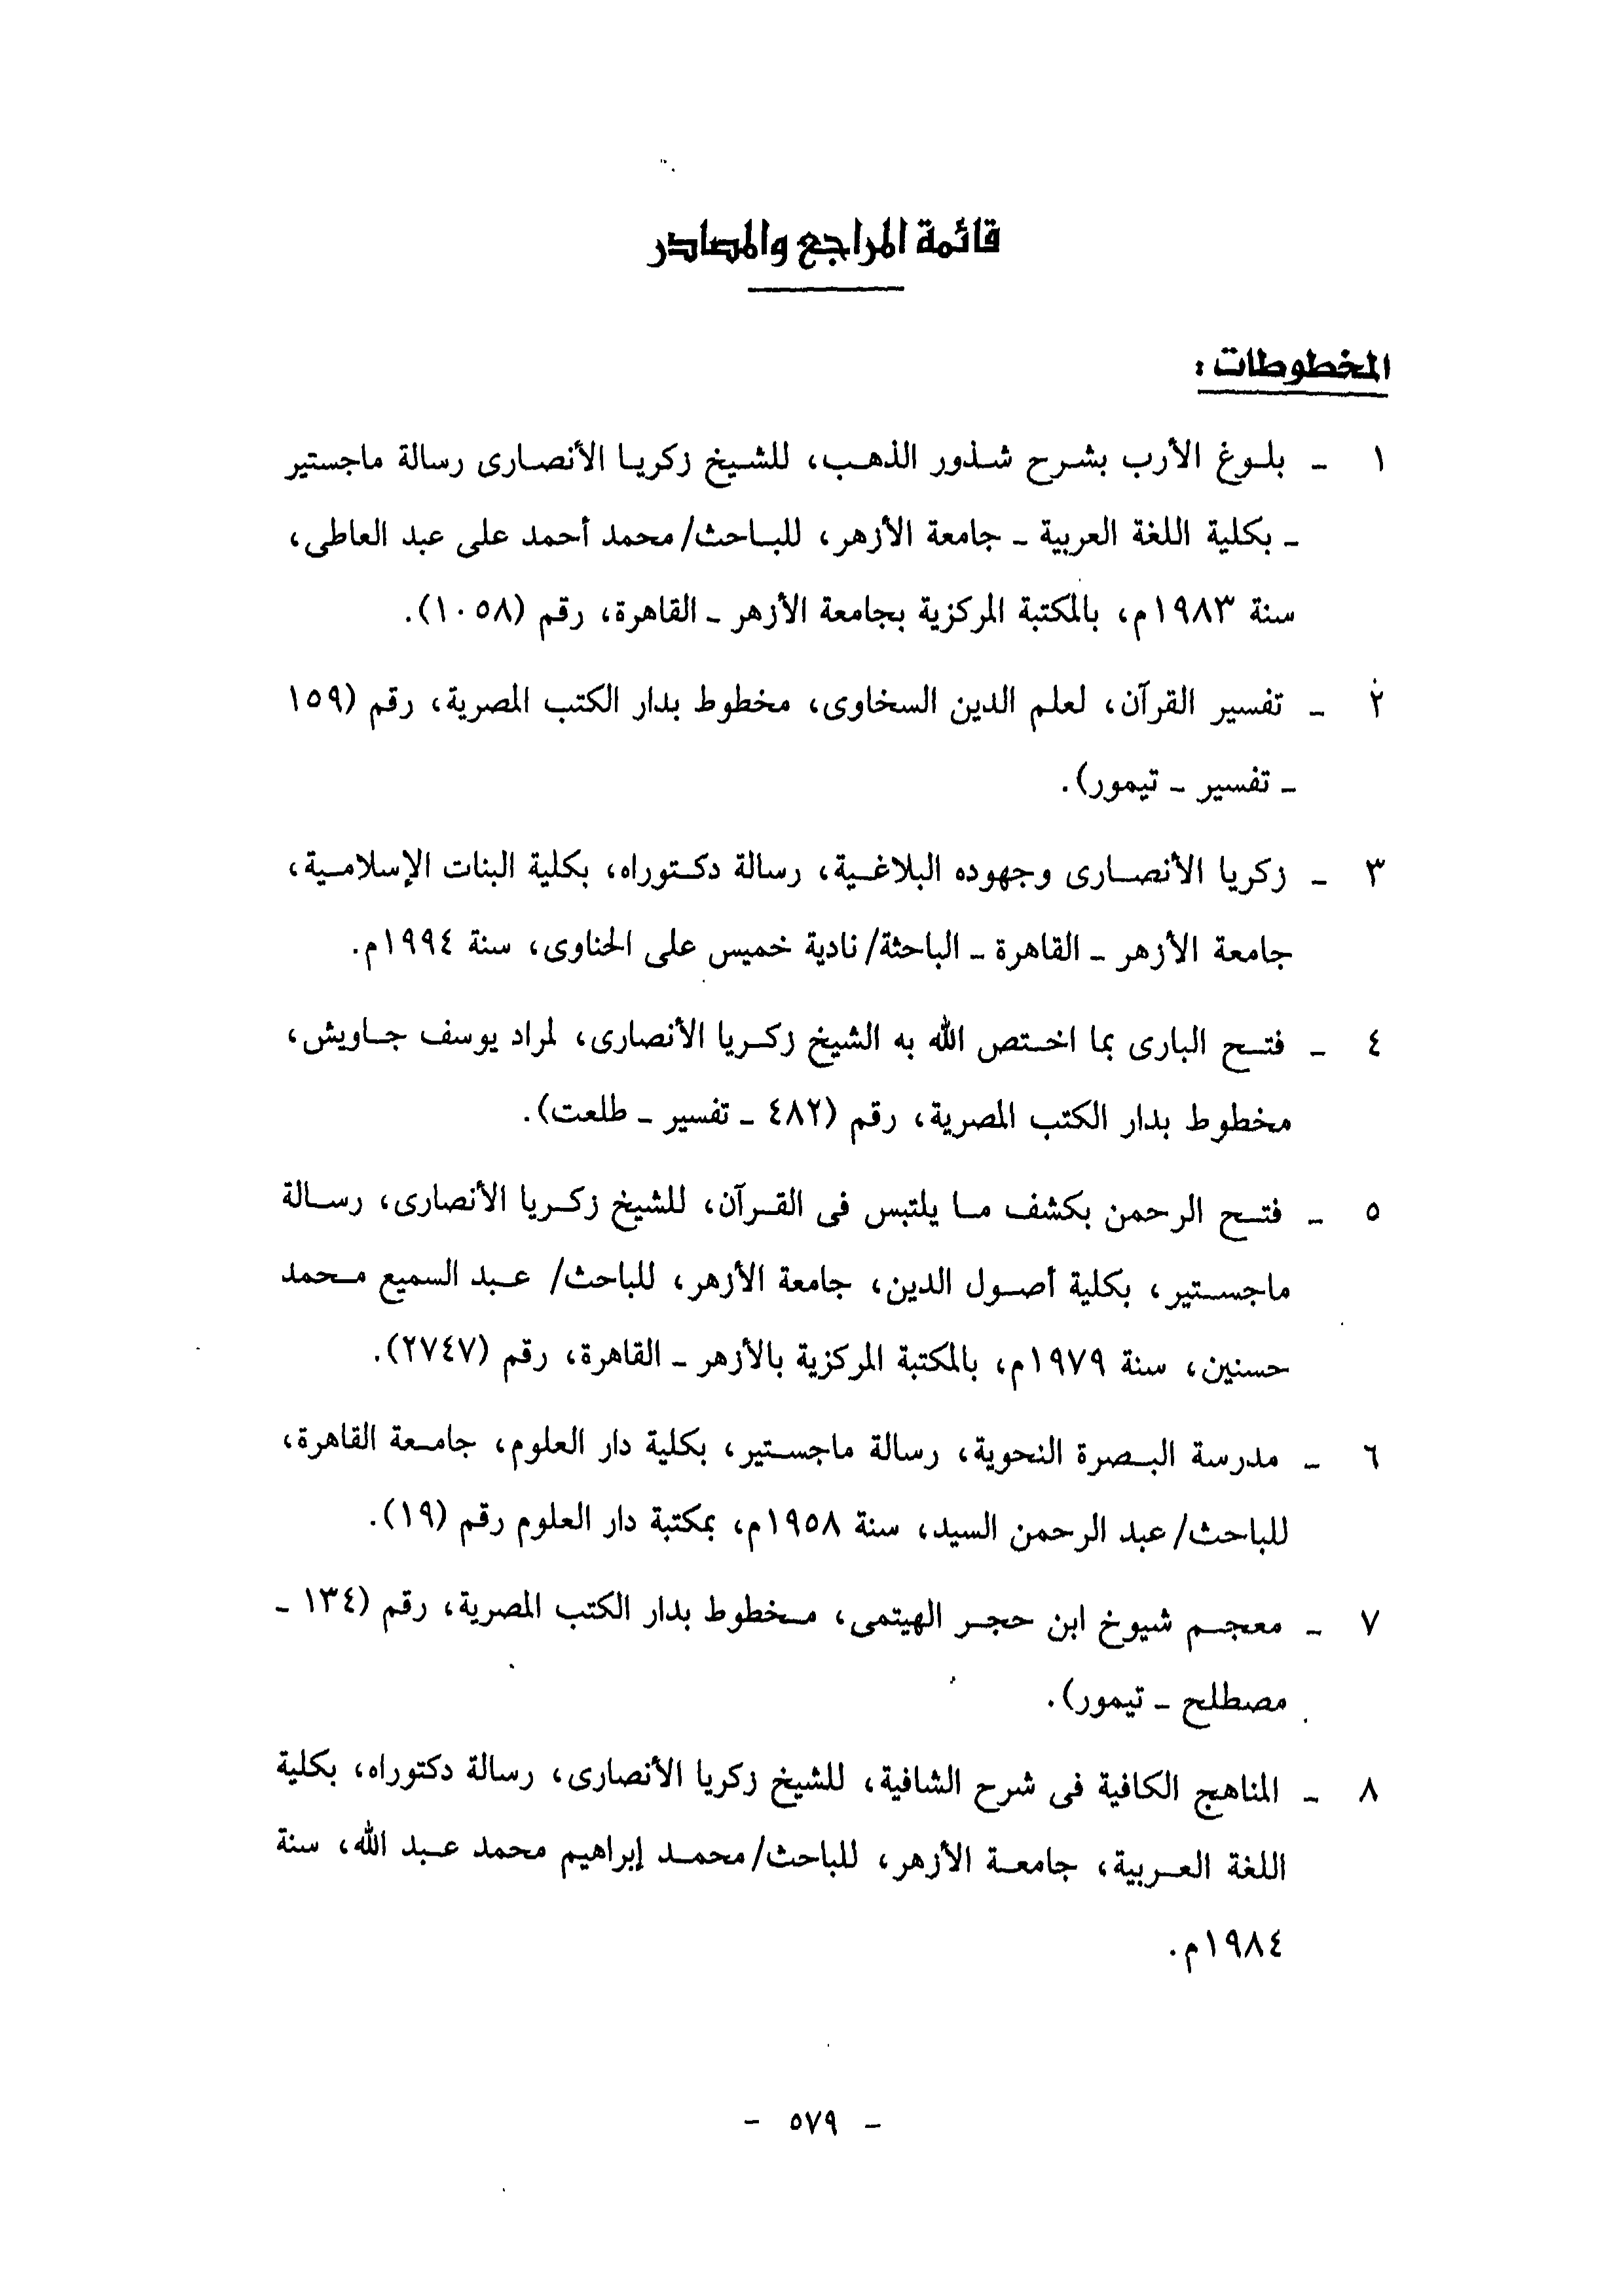 قائمة المراجع والمصادر
المخطوطات :
١ ـ بلوغ الأرب بشرح شذور الذهب، للشيخ زكريا الأنصارى رسالة ماجستير
ـ بكلية اللغة العربية ـ جامعة الأزهر، للباحث/ محمد أحمد على عبد العاطى،
سنة ١٩٨٣م، بالمكتبة المركزية بجامعة الأزهر ـ القاهرة، رقم (١٠٥٨).
٢ ـ تفسير القرآن، لعلم الدين السخاوى، مخطوط بدار الكتب المصرية، رقم (١٥٩
ـ تفسير ـ تيمور).
٣ ـ زكريا الأنصارى وجهوده البلاغية، رسالة دكتوراه، بكلية البنات الإسلامية،
جامعة الأزهر ـ القاهرة ـ الباحثة/ نادية خميس على الحناوى، سنة ١٩٩٤م.
٤ ـ فتح البارى بما اختص الله به الشيخ زكريا الأنصارى، لمراد يوسف جاويش،
مخطوط بدار الكتب المصرية، رقم (٤٨٢ ـ تفسير ـ طلعت).
٥ ـ فتح الرحمن بكشف ما يلتبس فى القرآن، للشيخ زكريا الأنصارى، رسالة
ماجستير، بكلية أصول الدين، جامعة الأزهر، للباحث/ عبد السميع محمد
حسنين، سنة ١٩٧٩م، بالمكتبة المركزية بالأزهر ـ القاهرة، رقم (٢٧٤٧).
٦ ـ مدرسة البصرة النحوية، رسالة ماجستير، بكلية دار العلوم، جامعة القاهرة،
للباحث/ عبد الرحمن السيد، سنة ١٩٥٨م، بمكتبة دار العلوم رقم (١٩).
٧ ـ معجم شيوخ ابن حجر الهيتمى، مخطوط بدار الكتب المصرية، رقم (١٣٤ ـ
مصطلح ـ تيمور).
٨ ـ المناهج الكافية فى شرح الشافية، للشيخ زكريا الأنصارى، رسالة دكتوراه، بكلية
اللغة العربية، جامعة الأزهر، للباحث/ محمد إبراهيم محمد عبد الله، سنة
١٩٨٤م.
ـ ٥٧٩ ـ